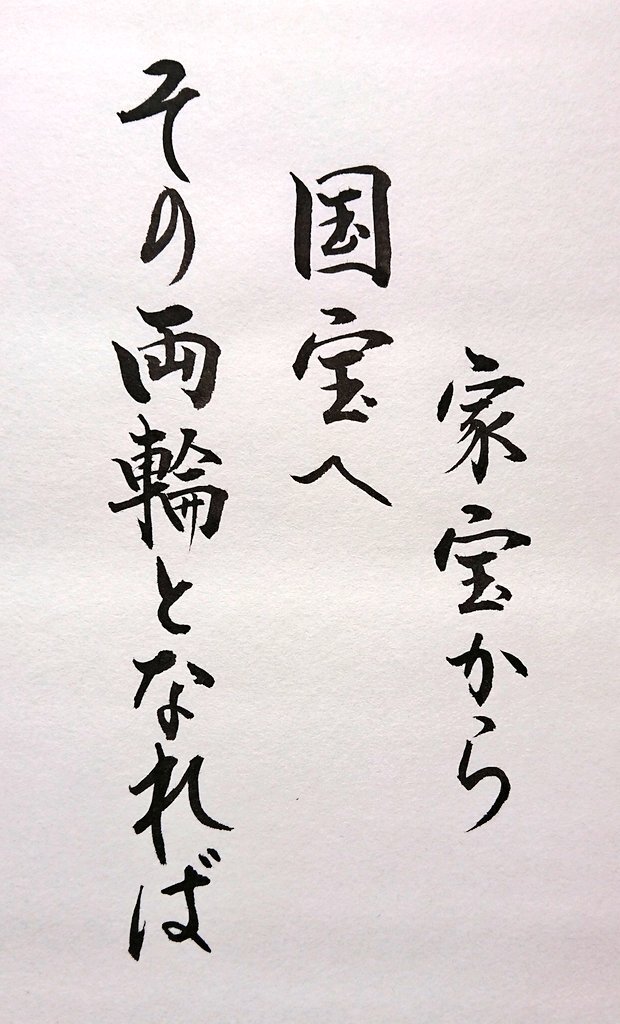 家宝から
国宝へ
その両輪となれば